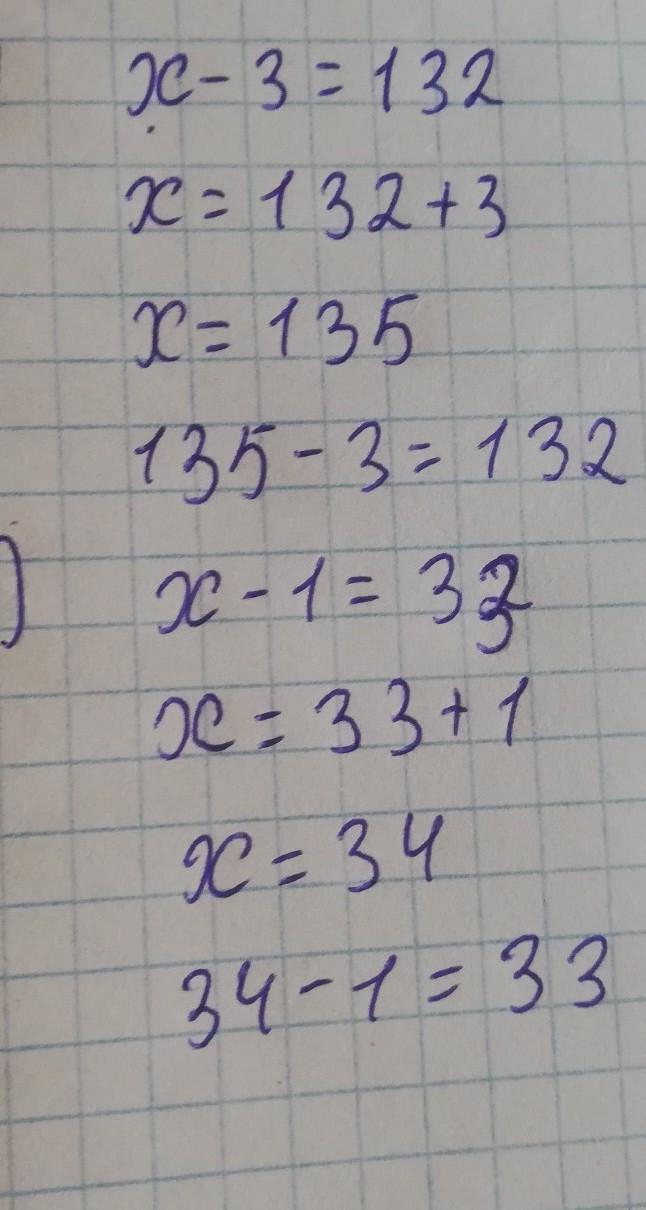 x - 3 = 132
x = 132 + 3
x = 135
135 - 3 = 132
) x - 1 = 33
x = 33 + 1
x = 34
34 - 1 = 33